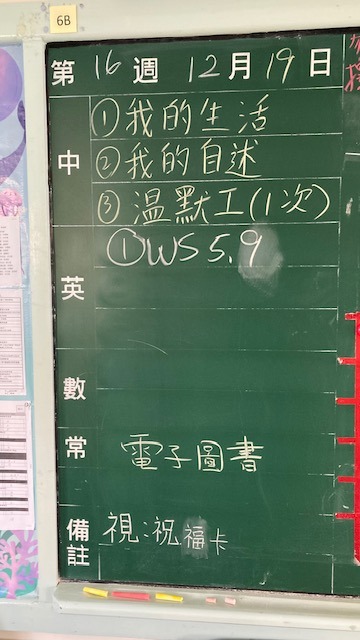 6B
第 16 週 12 月 19 日
中
①我的生活
②我的自述
③温默工(1次)
英
①WS 5.9
數
常
電子圖書
備註
視:祝福卡